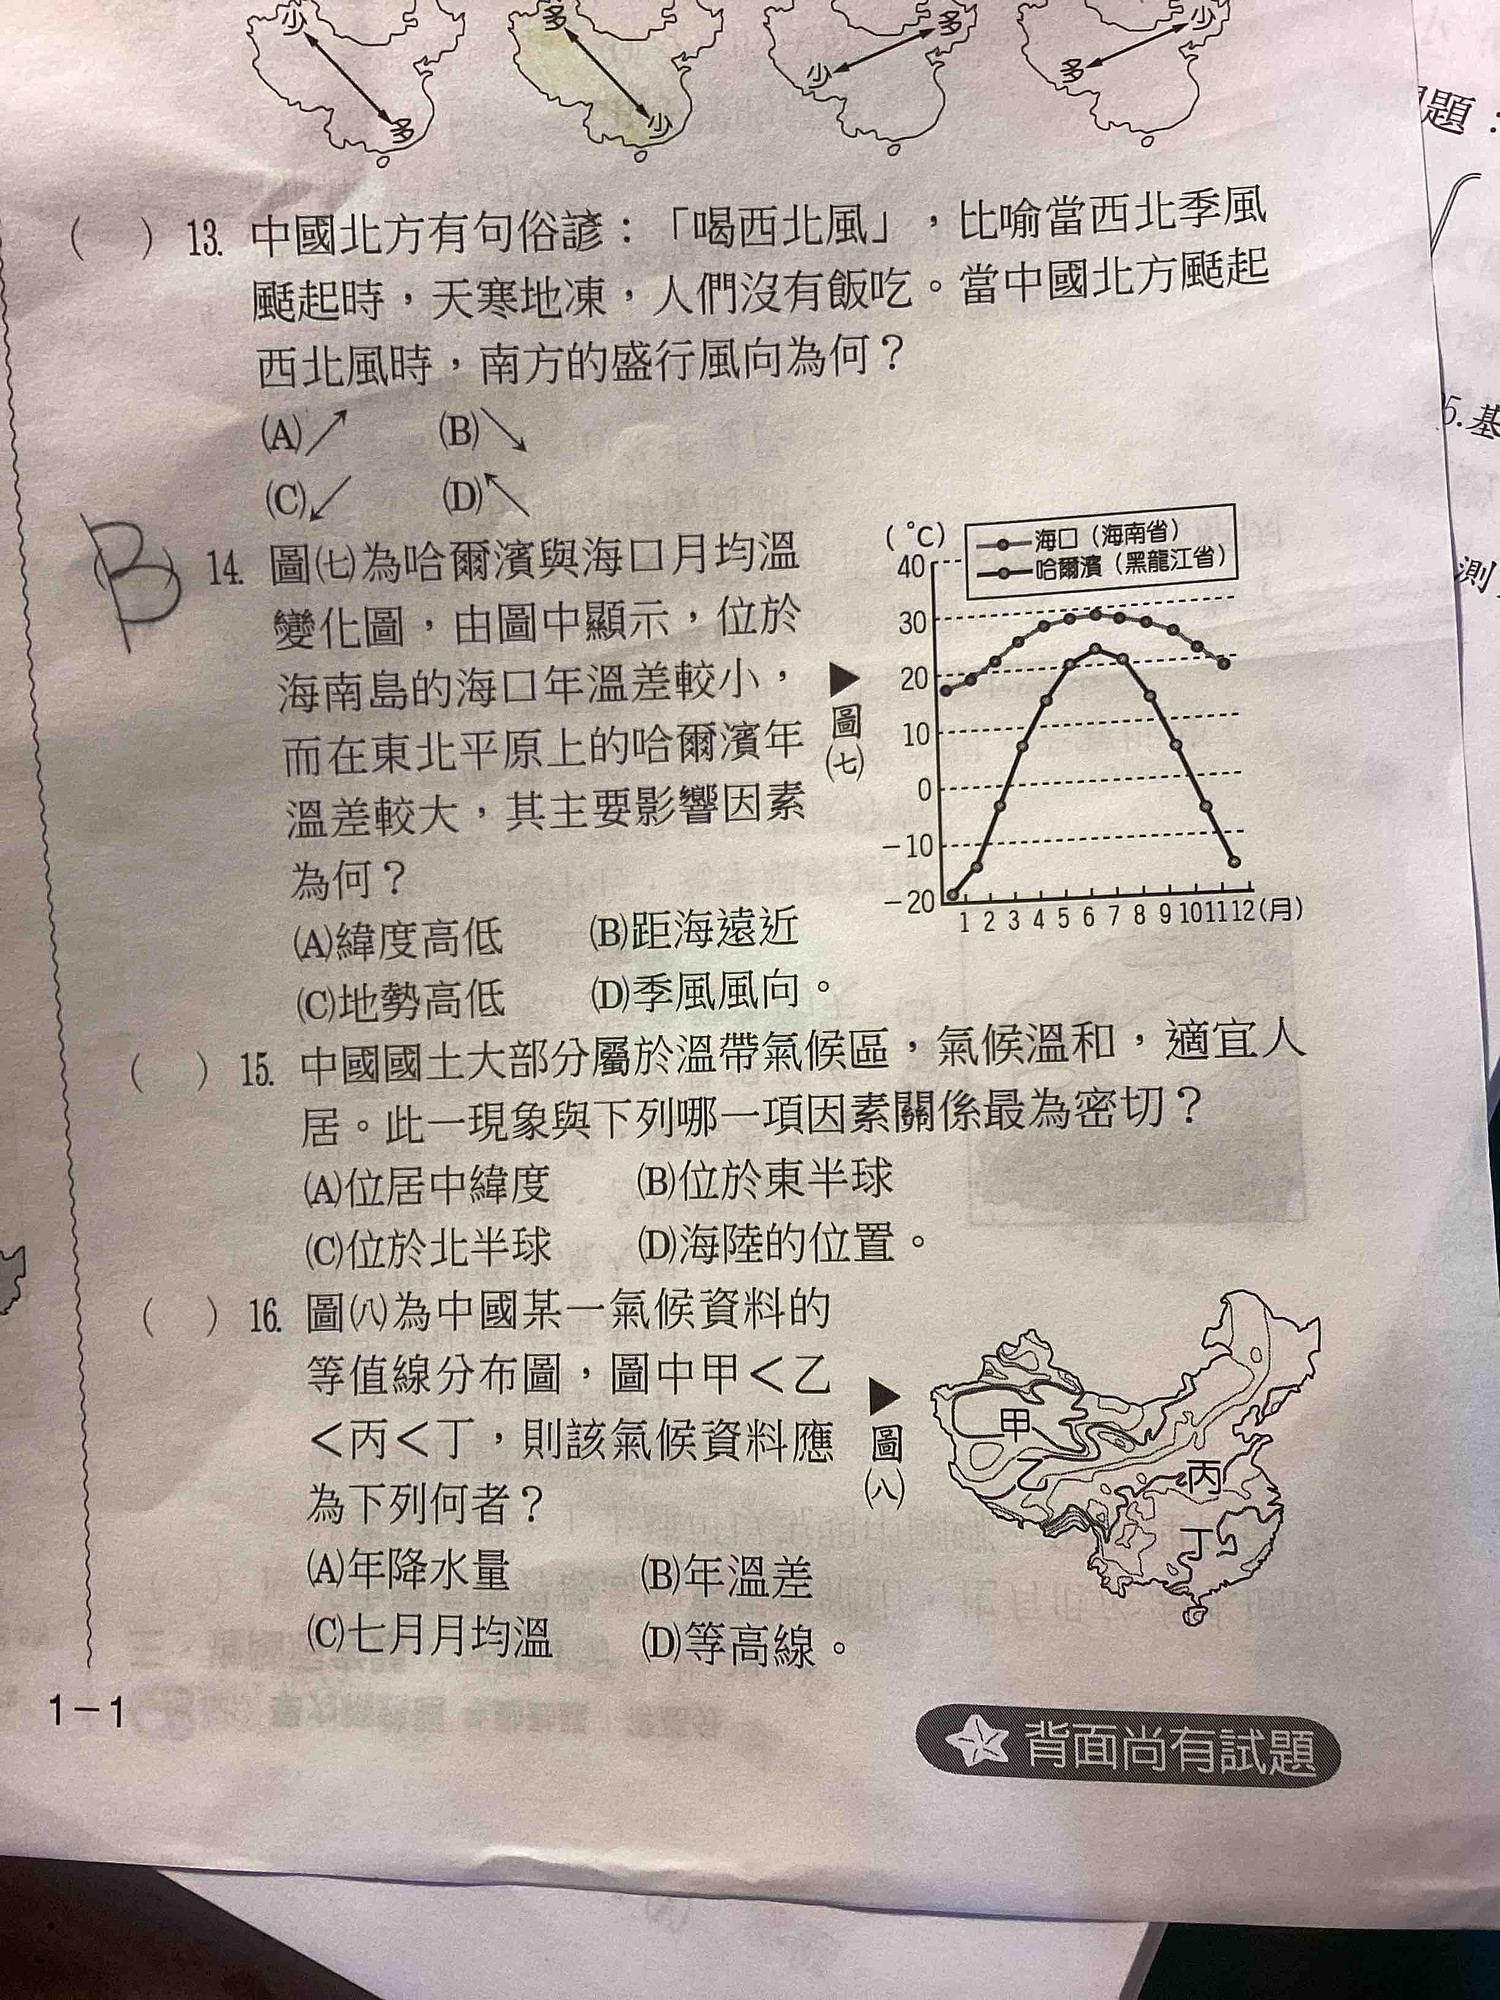 少 多 多 少
多 少 少 多
( ) 13. 中國北方有句俗諺：「喝西北風」，比喻當西北季風
颳起時，天寒地凍，人們沒有飯吃。當中國北方颳起
西北風時，南方的盛行風向為何？
(A)↗ (B)↘
(C)↙ (D)↖
(B) 14. 圖(七)為哈爾濱與海口月均溫
變化圖，由圖中顯示，位於
海南島的海口年溫差較小，
而在東北平原上的哈爾濱年
溫差較大，其主要影響因素
為何？
(A)緯度高低 (B)距海遠近
(C)地勢高低 (D)季風風向。
▶
圖
(七)
(℃)
海口（海南省）
哈爾濱（黑龍江省）
40
30
20
10
0
－10
－20
1 2 3 4 5 6 7 8 9 10 11 12 (月)
( ) 15. 中國國土大部分屬於溫帶氣候區，氣候溫和，適宜人
居。此一現象與下列哪一項因素關係最為密切？
(A)位居中緯度 (B)位於東半球
(C)位於北半球 (D)海陸的位置。
( ) 16. 圖(八)為中國某一氣候資料的
等值線分布圖，圖中甲＜乙
＜丙＜丁，則該氣候資料應
為下列何者？
(A)年降水量 (B)年溫差
(C)七月月均溫 (D)等高線。
▶
圖
(八)
甲
乙 丙
丁
1－1
背面尚有試題
題：
5.基
測